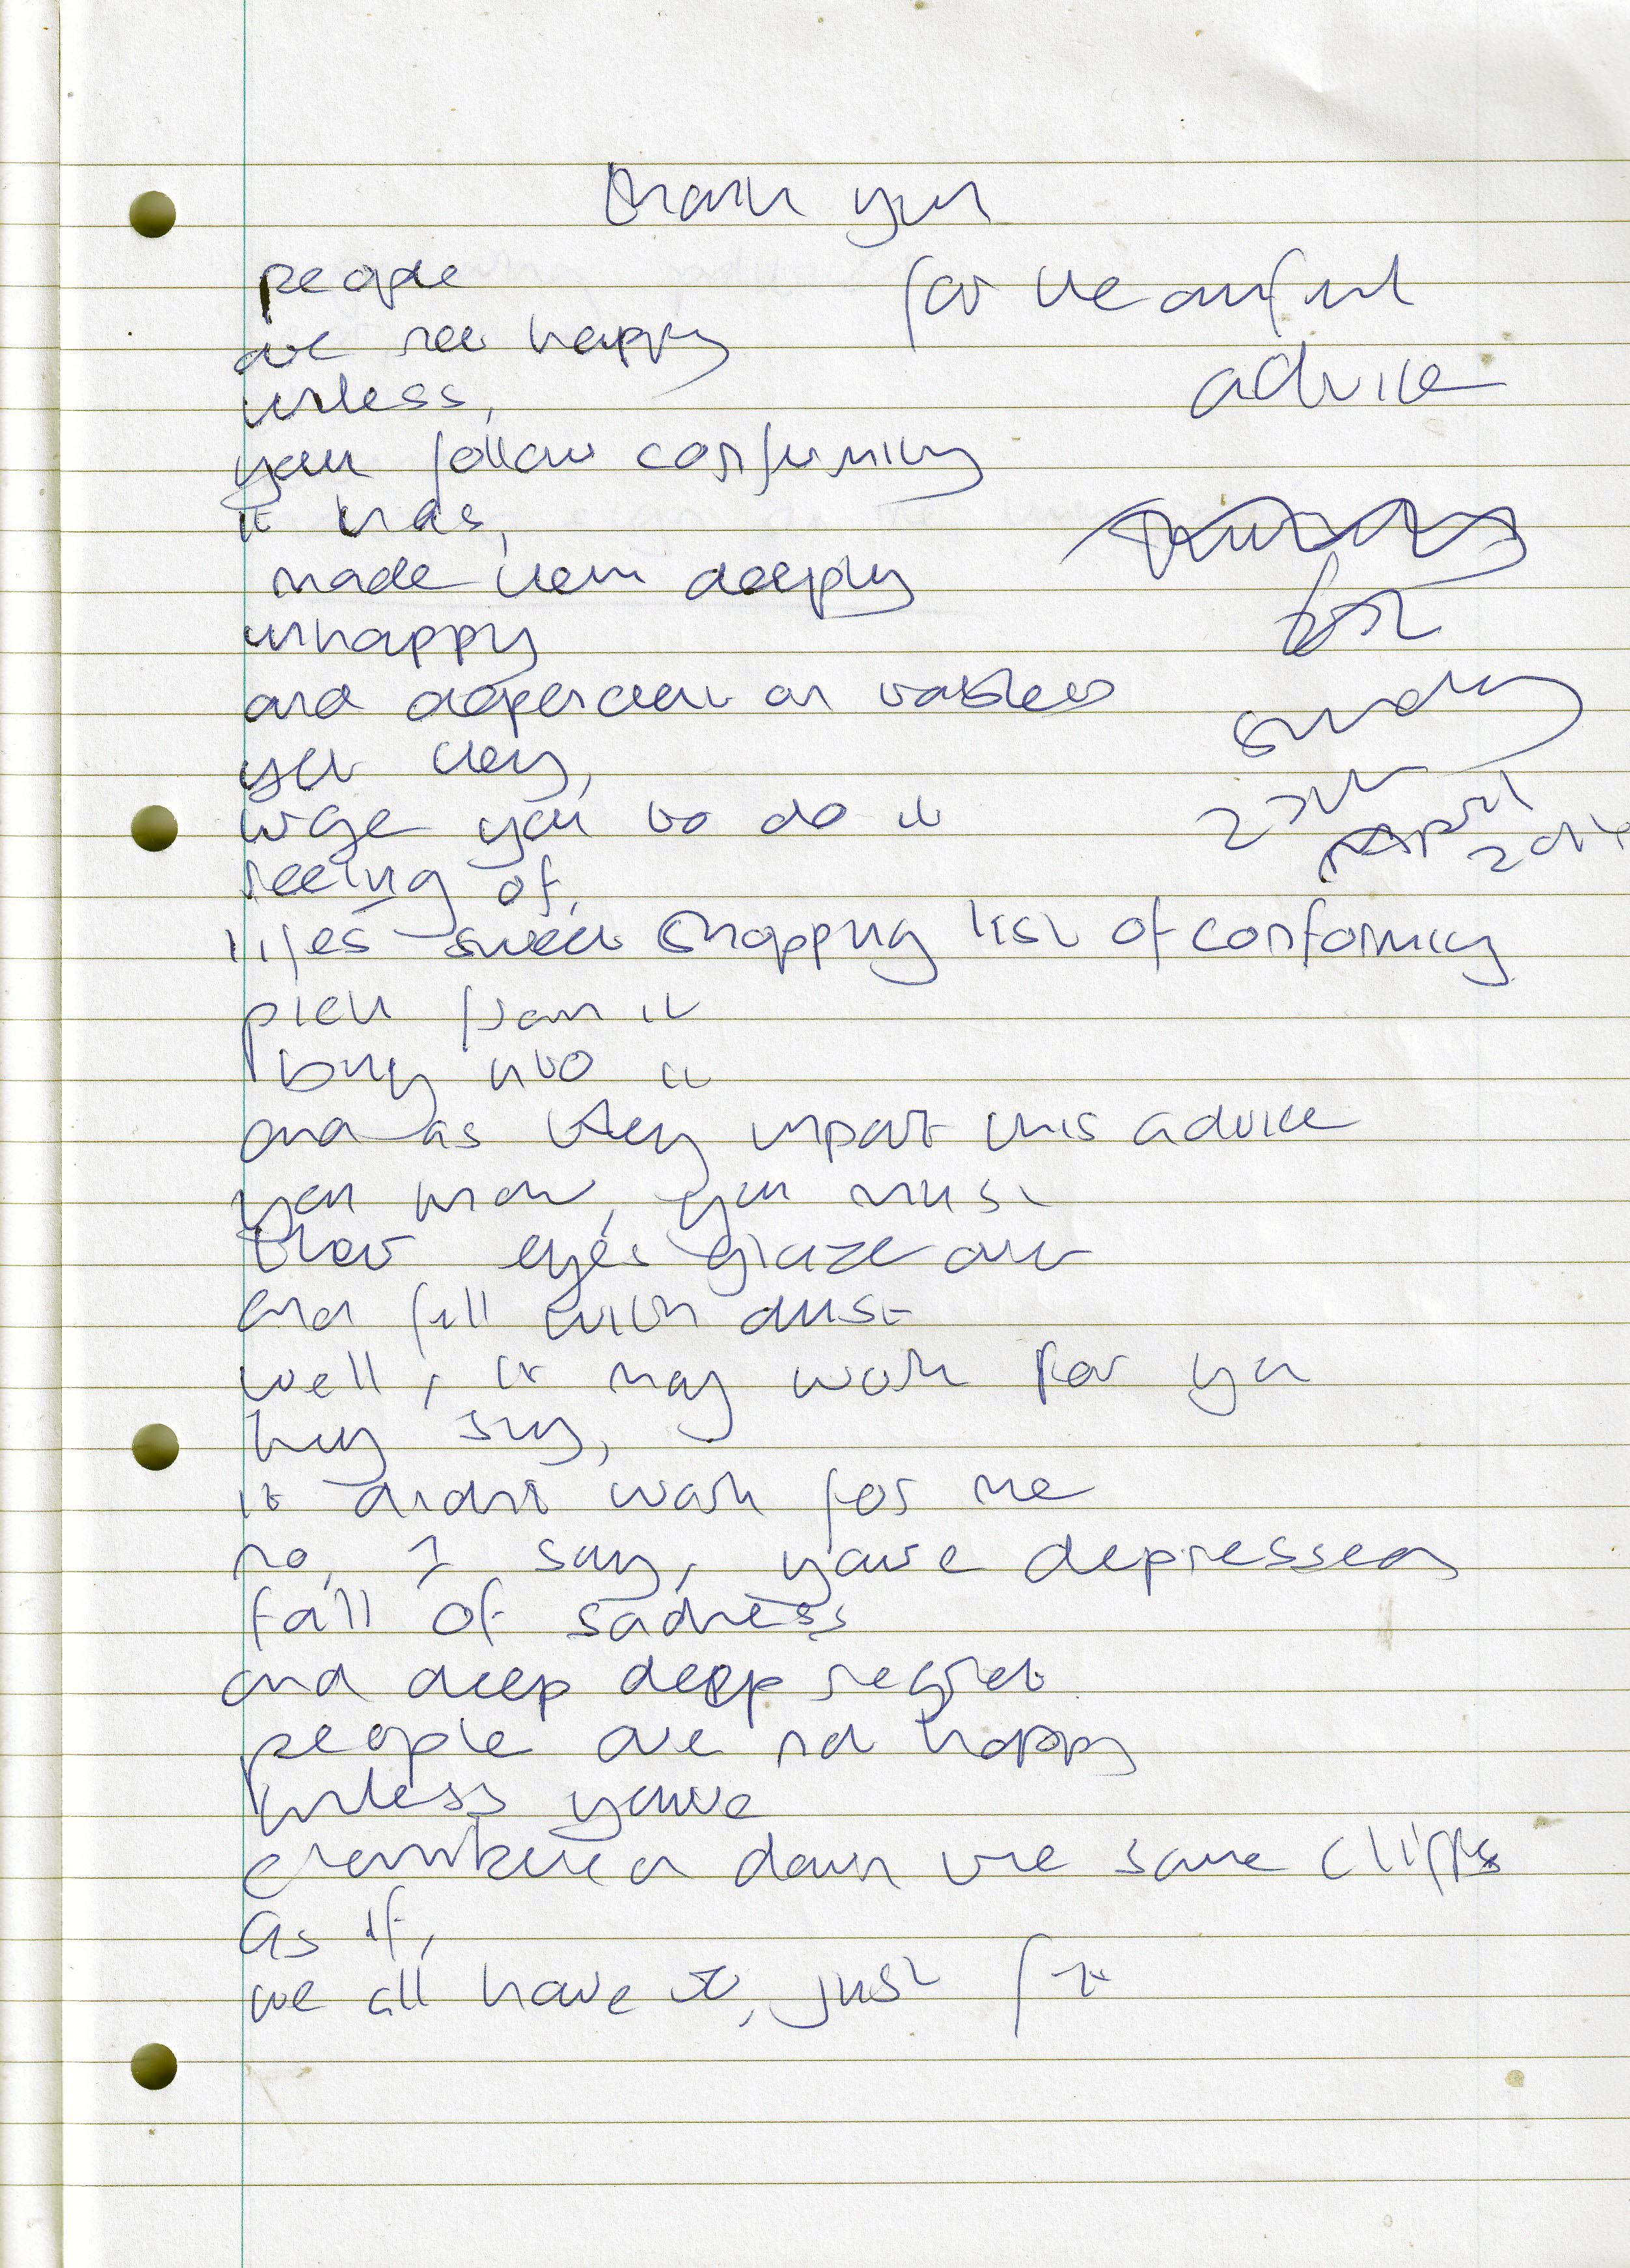 thank you
for the awful
advice
people
are not happy
unless,
you follow conformity
it has,
made them deeply
unhappy
and dependent on tablets
yet they,
urge you to do it
reeling off,
lifes sweet shopping list of conformity
pick from it
buy into it
and as they impart this advice
you know, you must
their eyes glaze over
and fill with dust
well, it may work for you
they say,
it didnt work for me
no, I say, youre depressed
full of sadness
and deep deep regret
people are not happy
unless youve
down the same cliffs
as if,
we all have to, just fit
Sunday
25th
April
2014